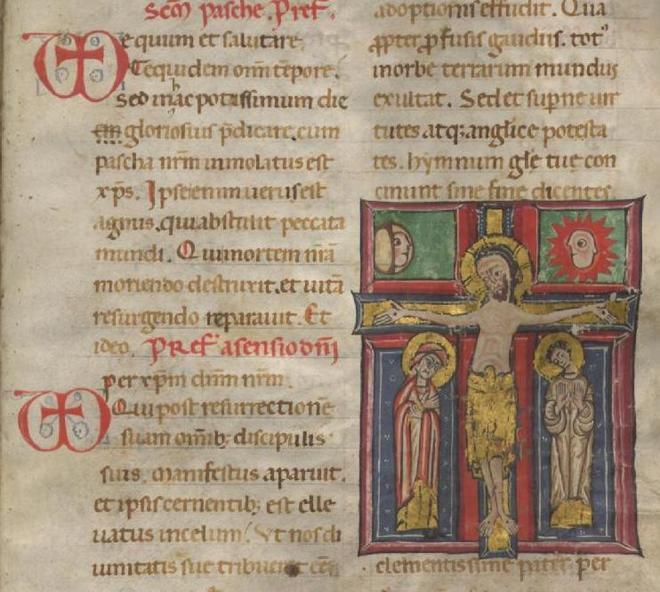 Scm pasche. Pref.
e equum et salutare.
Te quidem omni tēpore.
sed in hac potissimum die
gloriosius p̄dicare. cum
pascha nrm inmolatus est
xp̄s. Ipse enim uerus est
agnus. qui abstulit peccata
mundi. Qui mortem nrā
moriendo destruxit. et uitā
resurgendo reparauit. Et
ideo. Pref. asensio dn̄i
per xp̄m dnm nrm.
Qui post resurrectionē
suam omīb; discipulis
suis. manifestus aparuit.
et ipsis cernentib; est elle
uatus in celum. Vt nos di
uinitatis sue tribueret
adoptionis effudit. Qua
ꝓpter ꝓfusis gaudiis. totus
in orbe terrarum mundus
exultat. Sed et supne uir
tutes. atq; anglice potesta
tes. hymnum gle tue con
cinunt sine fine dicentes
clementissime pater per